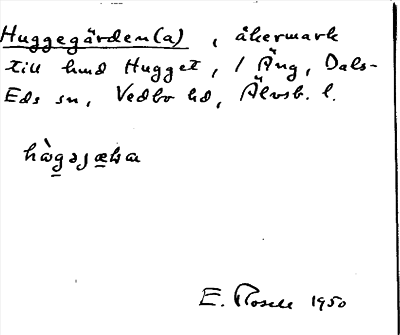 Huggegärden(a), åkermark
till hmd Hugget, / Äng, Dals-
Eds sn, Vedbo hd, Älvsb. l.
E. Rosell 1950